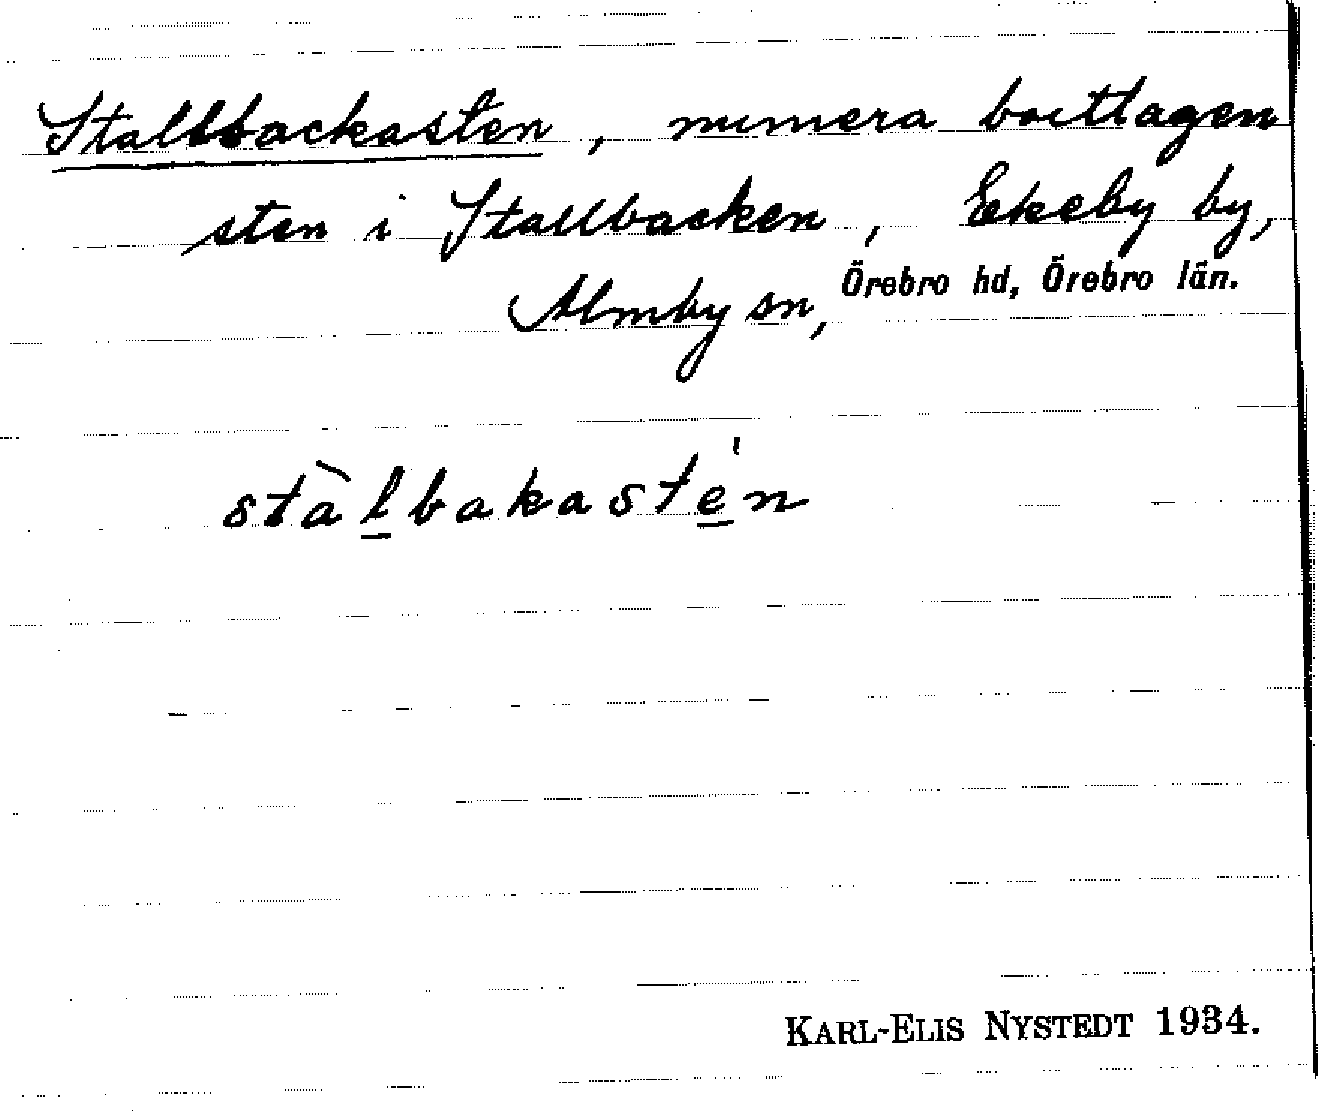 Stallbackasten, numera borttagen
sten i Stallbacken, Ekeby by,
Almby sn, Örebro hd, Örebro län.
stàl̲bakasté̲n
KARL-ELIS NYSTEDT 1934.